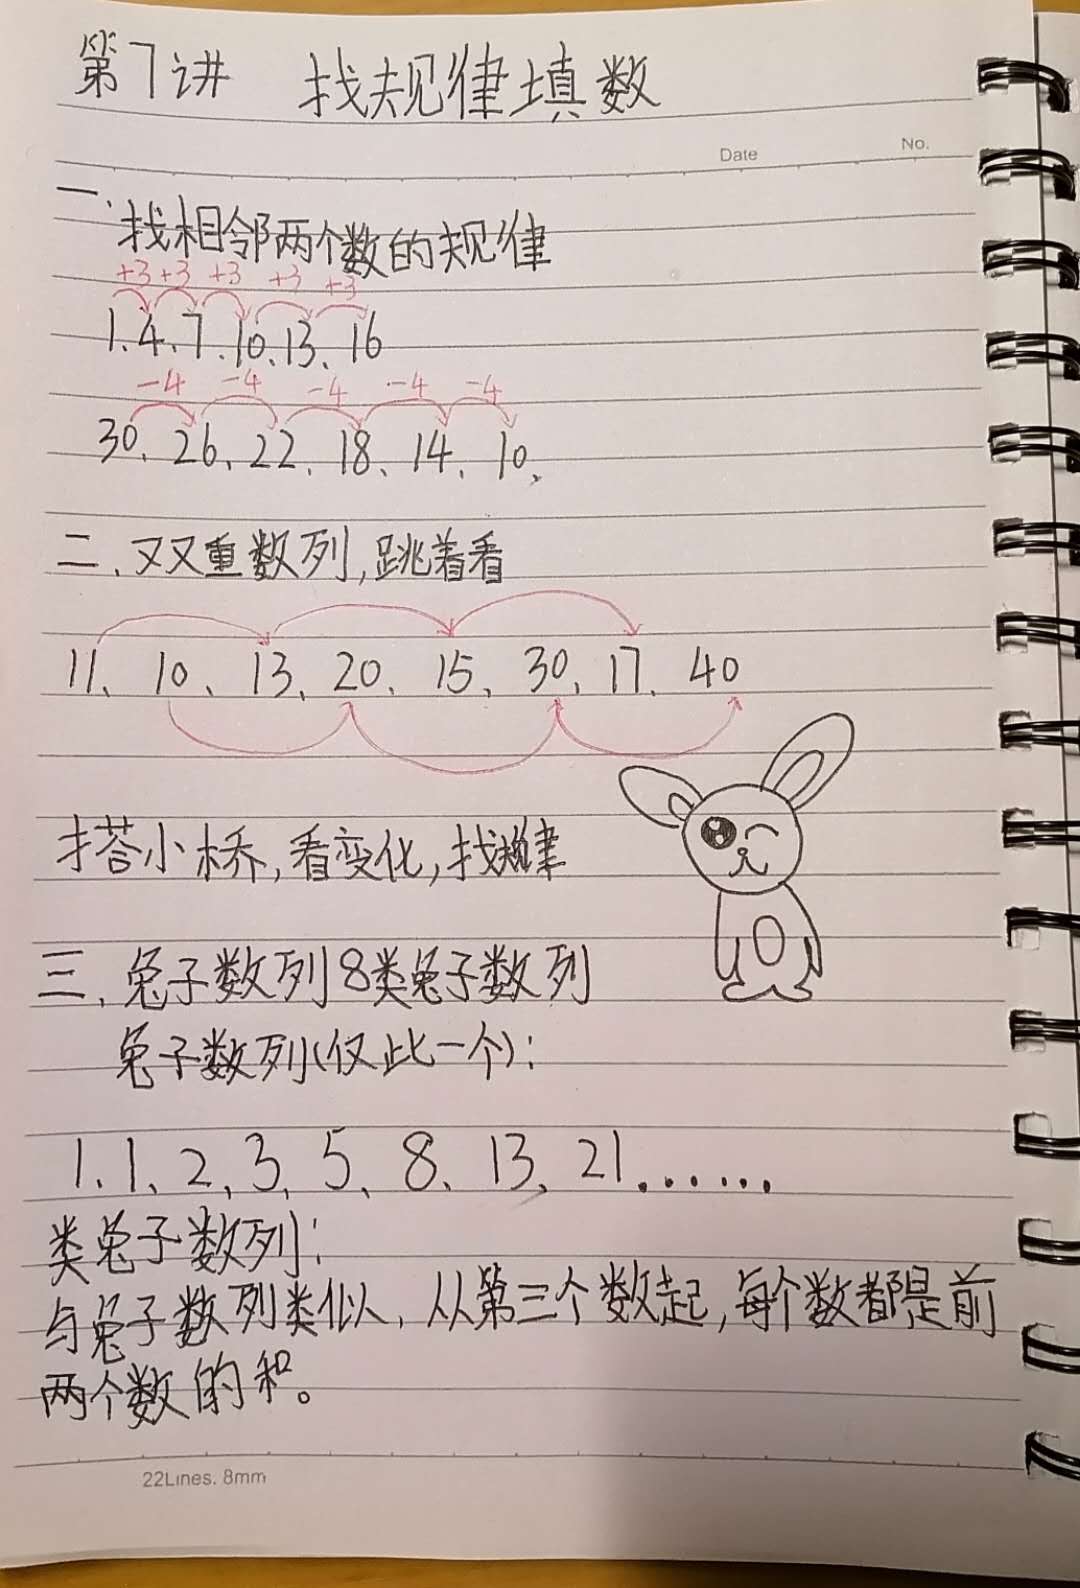 第7讲 找规律填数
Date No.
一.找相邻两个数的规律
+3 +3 +3 +3 +3
1、4、7、10、13、16
-4 -4 -4 -4 -4
30、26、22、18、14、10、
二、双重数列,跳着看
11、10、13、20、15、30、17、40
搭小桥,看变化,找规律
三、兔子数列8类兔子数列
兔子数列(仅此一个):
1、1、2、3、5、8、13、21.......
类兔子数列:
与兔子数列类似,从第三个数起,每个数都是前
两个数的和。
22Lines. 8mm